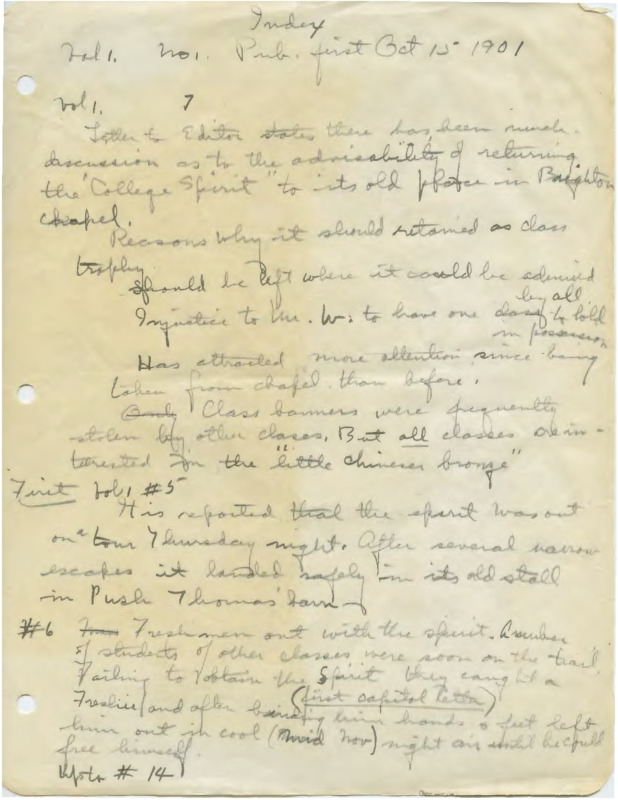 Index
Vol 1. No 1. Pub. first Oct 15 1901
Vol 1. 7
Letter to Editor states there has been much
discussion as to the advisability of returning
the "College Spirit" to its old place in Brighton
chapel.
Reasons why it should retained as class
trophy
should be left where it could be admired
by all
Injustice to Mr. W. to have one class to hold
in possession
Has attracted more attention since being
taken from chapel than before.
Only Class banners were frequently
stolen by other clases. But all classes are in-
terested in the "little chineser bronze"
First Vol 1 #5
It is reported that the spirit was out
on a tour Thursday night. After several narrow
escapes it landed safely in its old stall
in Push Thomas' barn
#6 Freshmen out with the spirit. A number
of students of other classes were soon on the trail.
Failing to obtain the Spirit they caught a
(first capital letter)
Freshie and after binding him hands & feet left
him out in cool (mid Nov) night air until he could
free himself.
Up to # 14